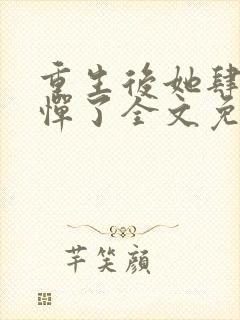 重生後她肆
憚了全文免
芊笑顏